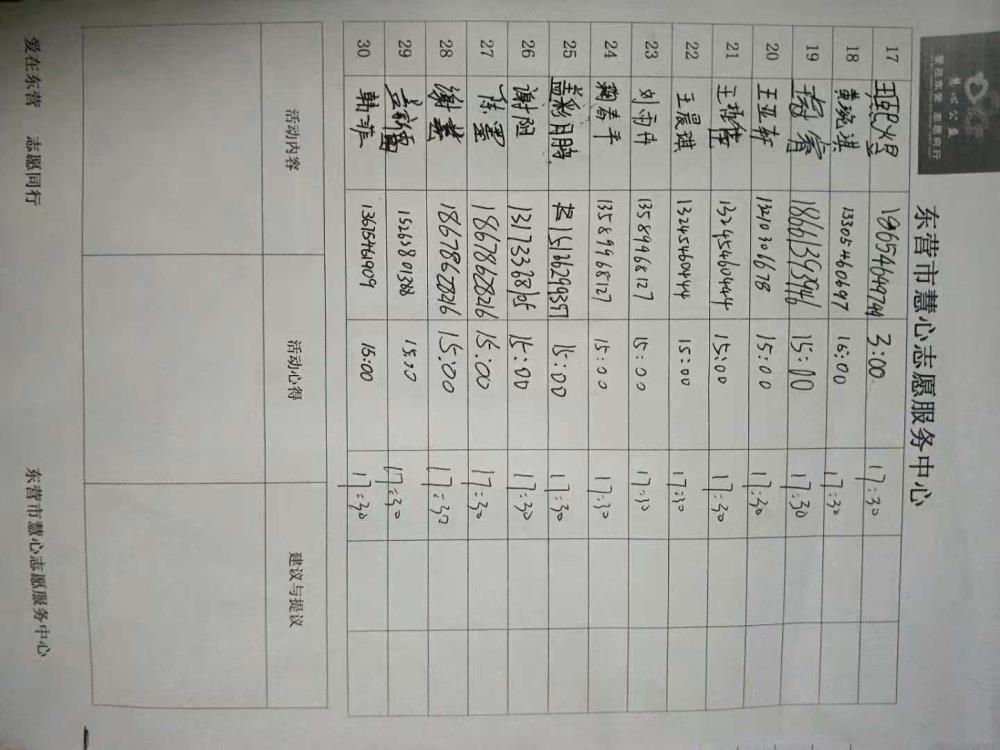 慧心公益
爱在东营 志愿同行
东营市慧心志愿服务中心
17 3:00 17:30
18 黄琬淇 13305460697 16:00 17:30
19 18661393946 15:00 17:30
20 王亚轩 13210301678 15:00 17:30
21 13245460444 15:00 17:30
22 王晨琪 13245460444 15:00 17:30
23 刘雨冉 13589968127 15:00 17:30
24 鞠春平 13589968127 15:00 17:30
25 15126299357 15:00 17:30
26 谢阳 15:00 17:30
27 陈墨 1867862826 15:00 17:30
28 1867862826 15:00 17:30
29 15263801388 15:00 17:30
30 韩菲 13615461909 16:00 17:30
活动内容 活动心得 建议与提议
爱在东营 志愿同行 东营市慧心志愿服务中心